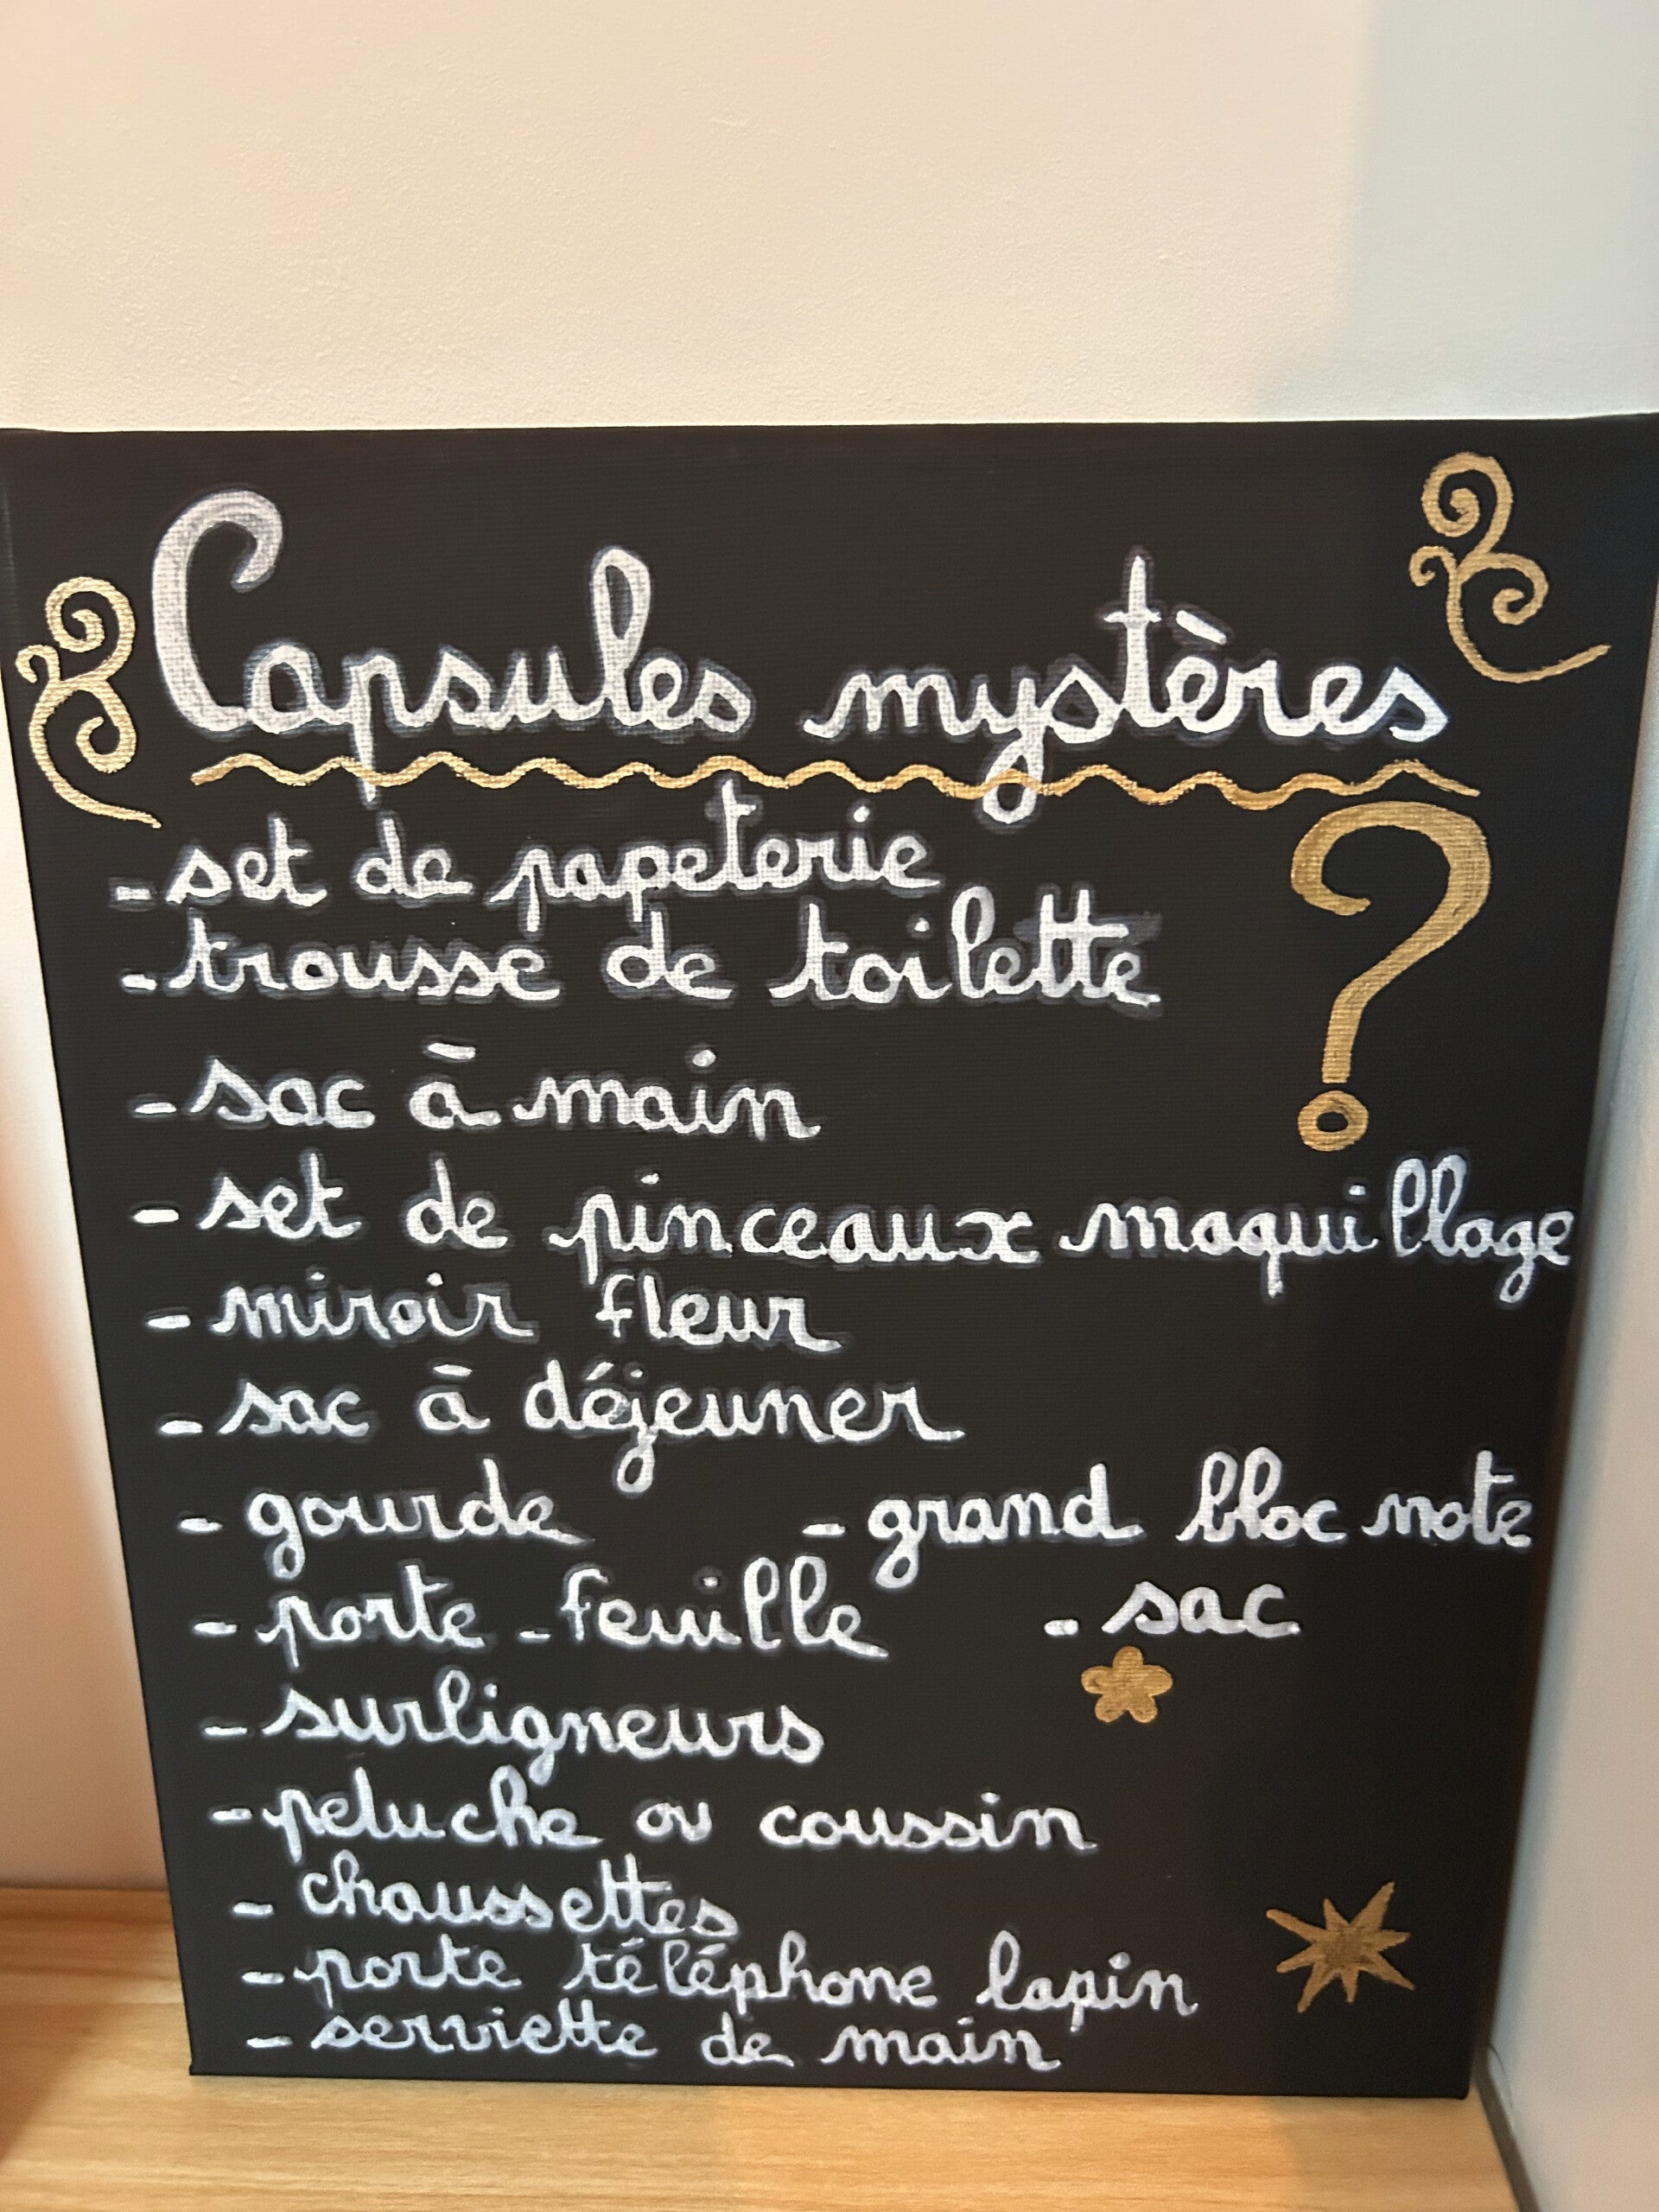 Capsules mystères
- set de papeterie
- trousse de toilette
- sac à main
- set de pinceaux maquillage
- miroir fleur
- sac à déjeuner
- gourde - grand bloc note
- porte-feuille - sac
- surligneurs
- peluche ou coussin
- chaussettes
- porte téléphone lapin
- serviette de main
?